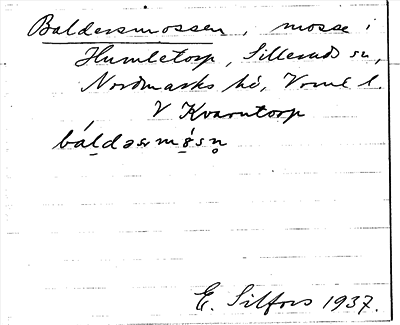 Baldersmossen, mosse i
Humletorp, Sillerud sn,
Nordmarks hd, Vrml l.
V Kvarntorp
báldəsmósn̥
E. Silfors 1937.